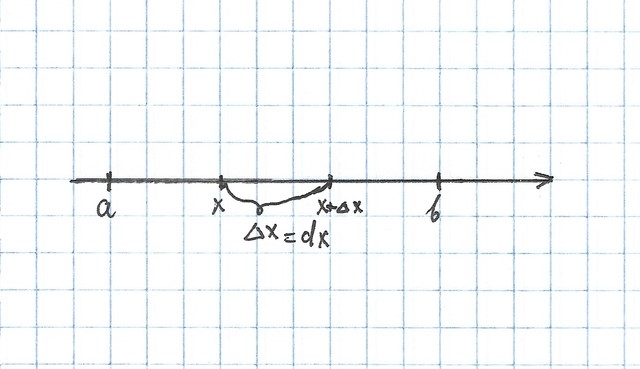 a x x+Δx b
Δx = dx